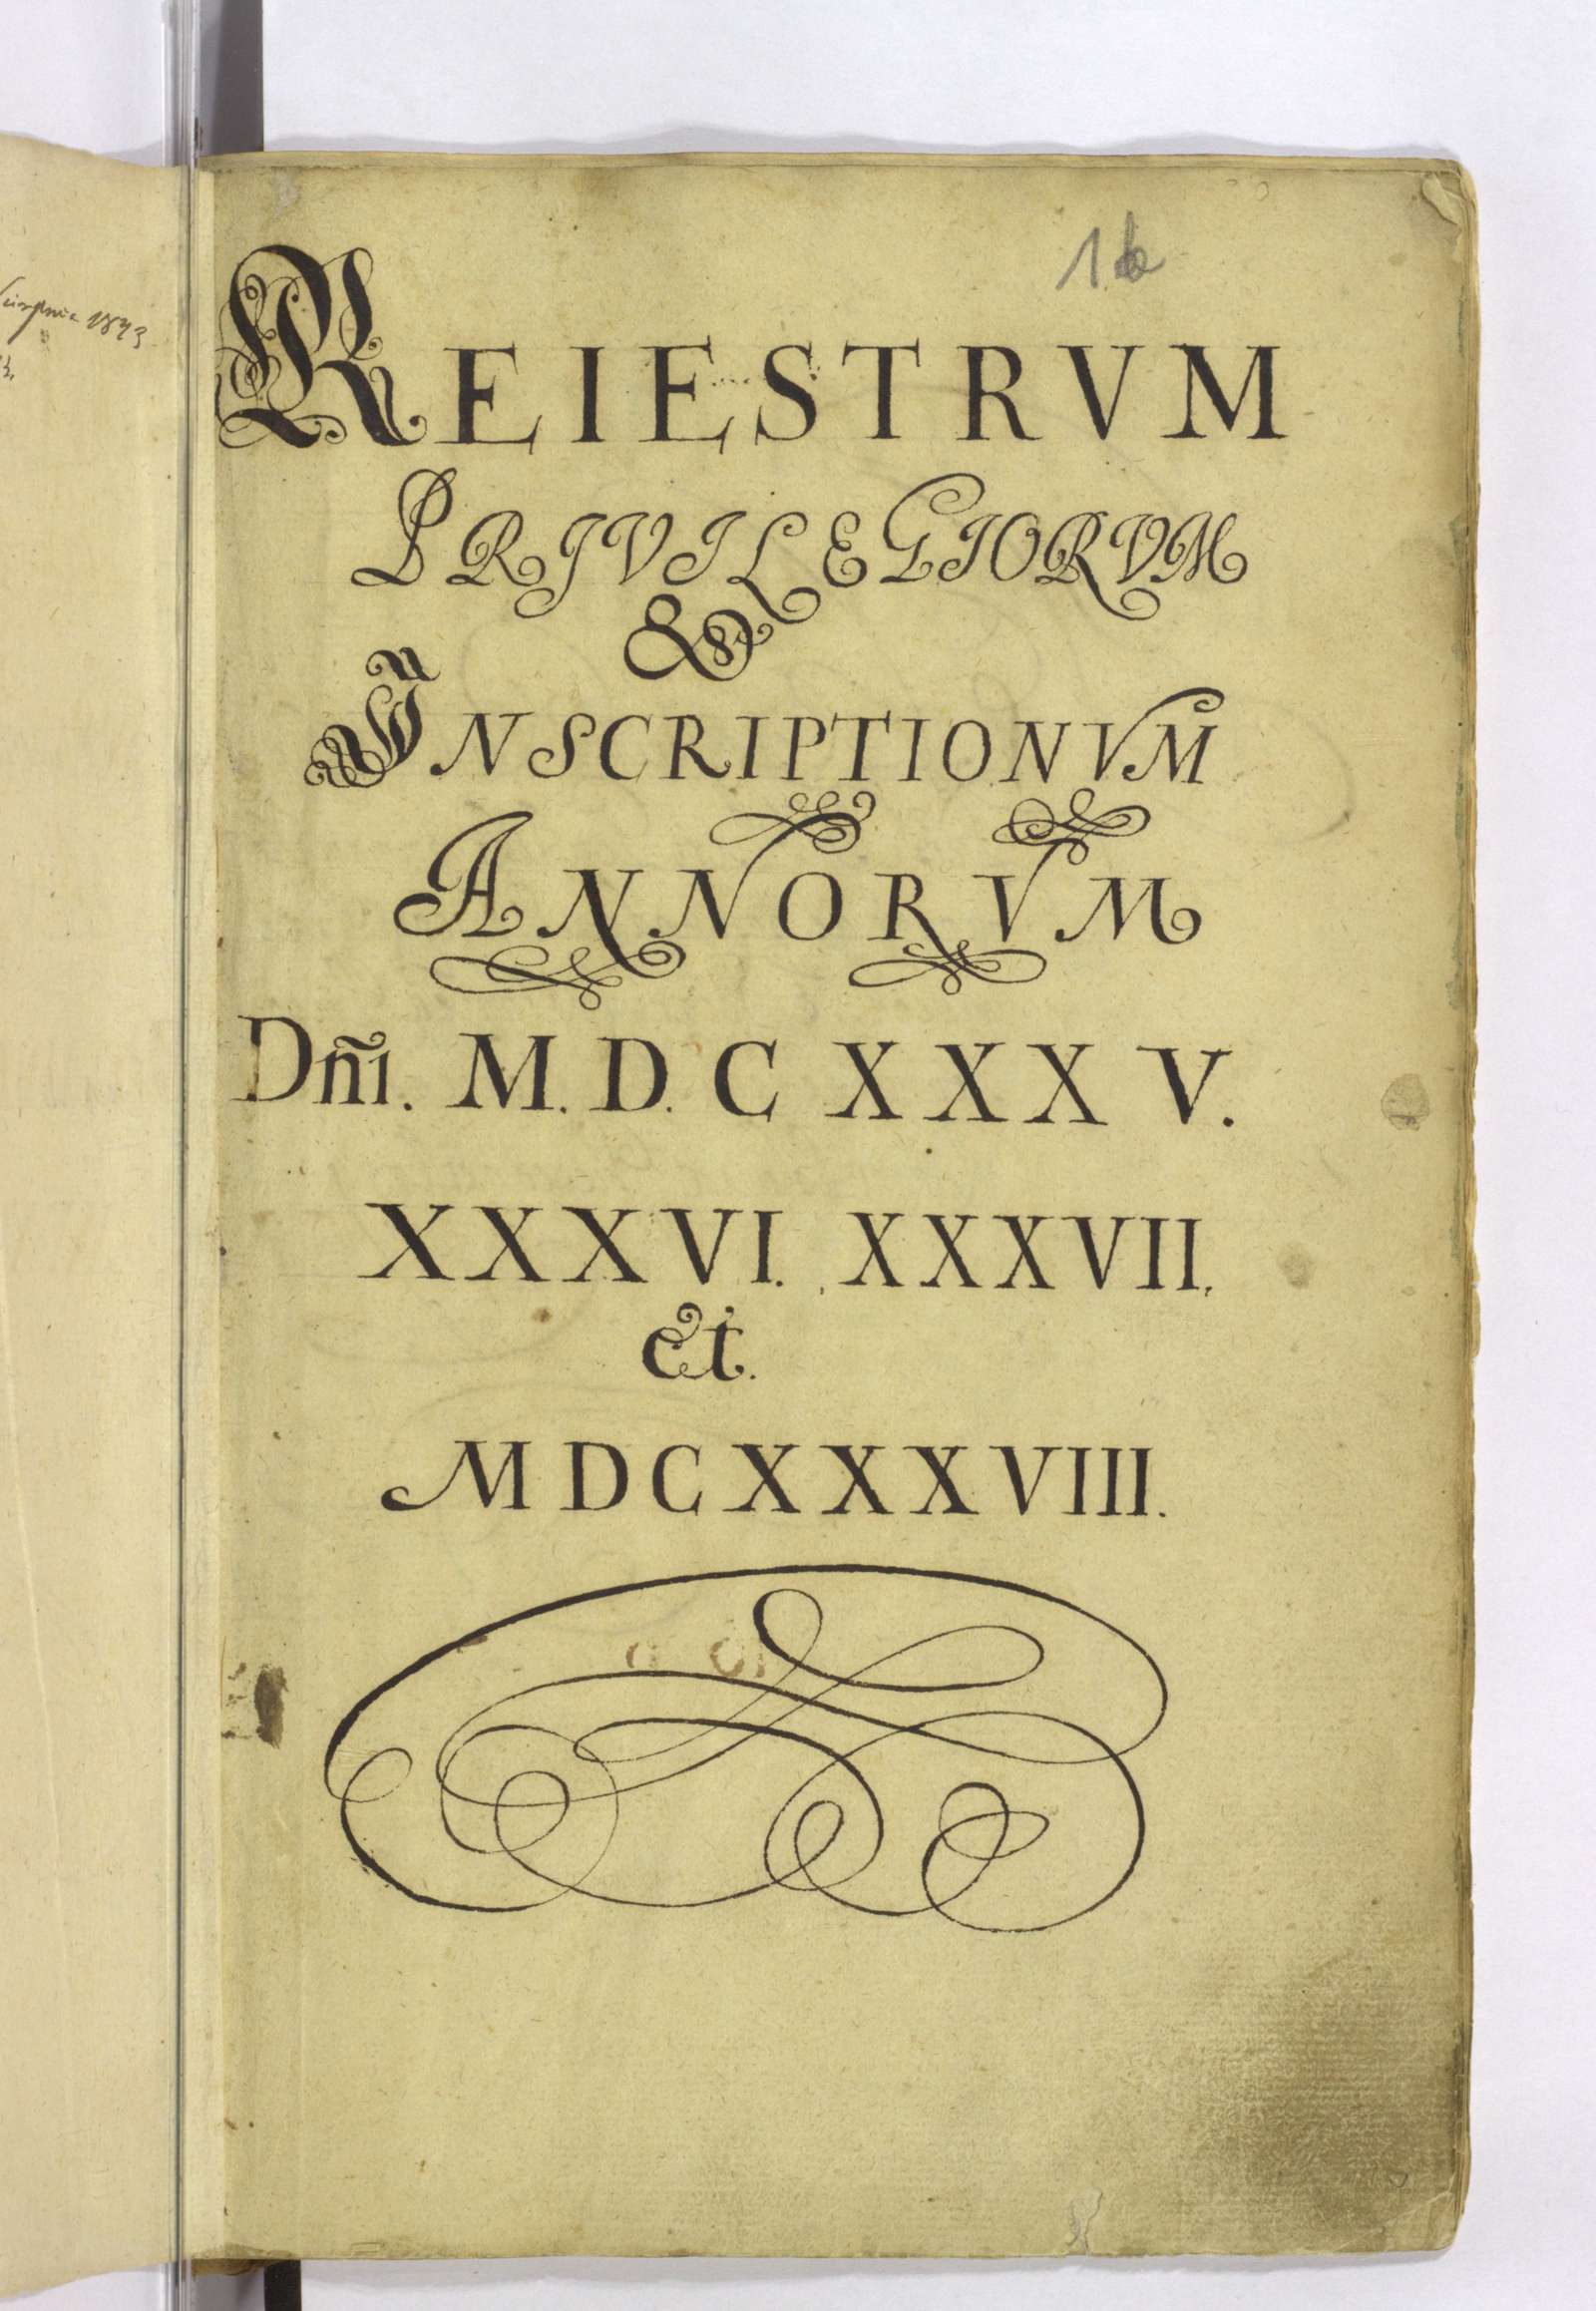 Sierpnia 1893
1b
REIESTRVM
PRIVILEGIORVM
&
INSCRIPTIONVM
ANNORVM
Dñi. M. D. C X X X V.
XXXVI. XXXVII.
et.
MDCXXXVIII.